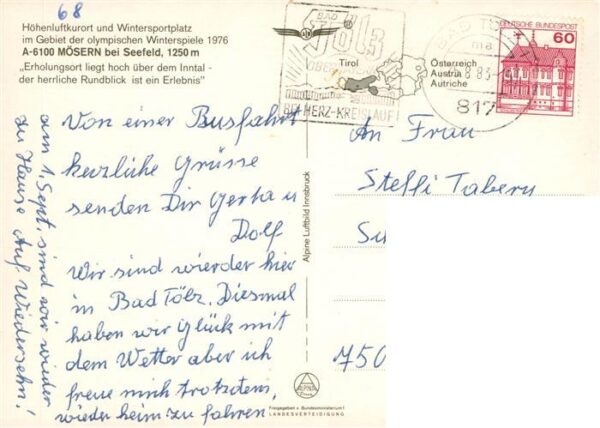 68
Höhenluftkurort und Wintersportplatz
im Gebiet der olympischen Winterspiele 1976
A-6100 MÖSERN bei Seefeld, 1250 m
„Erholungsort liegt hoch über dem Inntal -
der herrliche Rundblick ist ein Erlebnis"
Von einer Busfahrt
herzliche Grüsse
senden Dir Gertha u
Dolf
Wir sind wieder hier
in Bad Tölz. Diesmal
haben wir Glück mit
dem Wetter aber ich
freue mich trotzdem,
wieder heim zu fahren
am 1. Sept. sind wir wieder
zu Hause Auf Wiedersehn!
Alpine Luftbild Innsbruck
BAD
Tölz
BEI HERZ-KREISLAUF!
Tirol
Österreich
Austria
Autriche
BAD TÖLZ
ma
817
DEUTSCHE BUNDESPOST
60
An Frau
Steffi Tabery
750
ALPINE
Freigegeben v. Bundesministerium f.
LANDESVERTEIDIGUNG